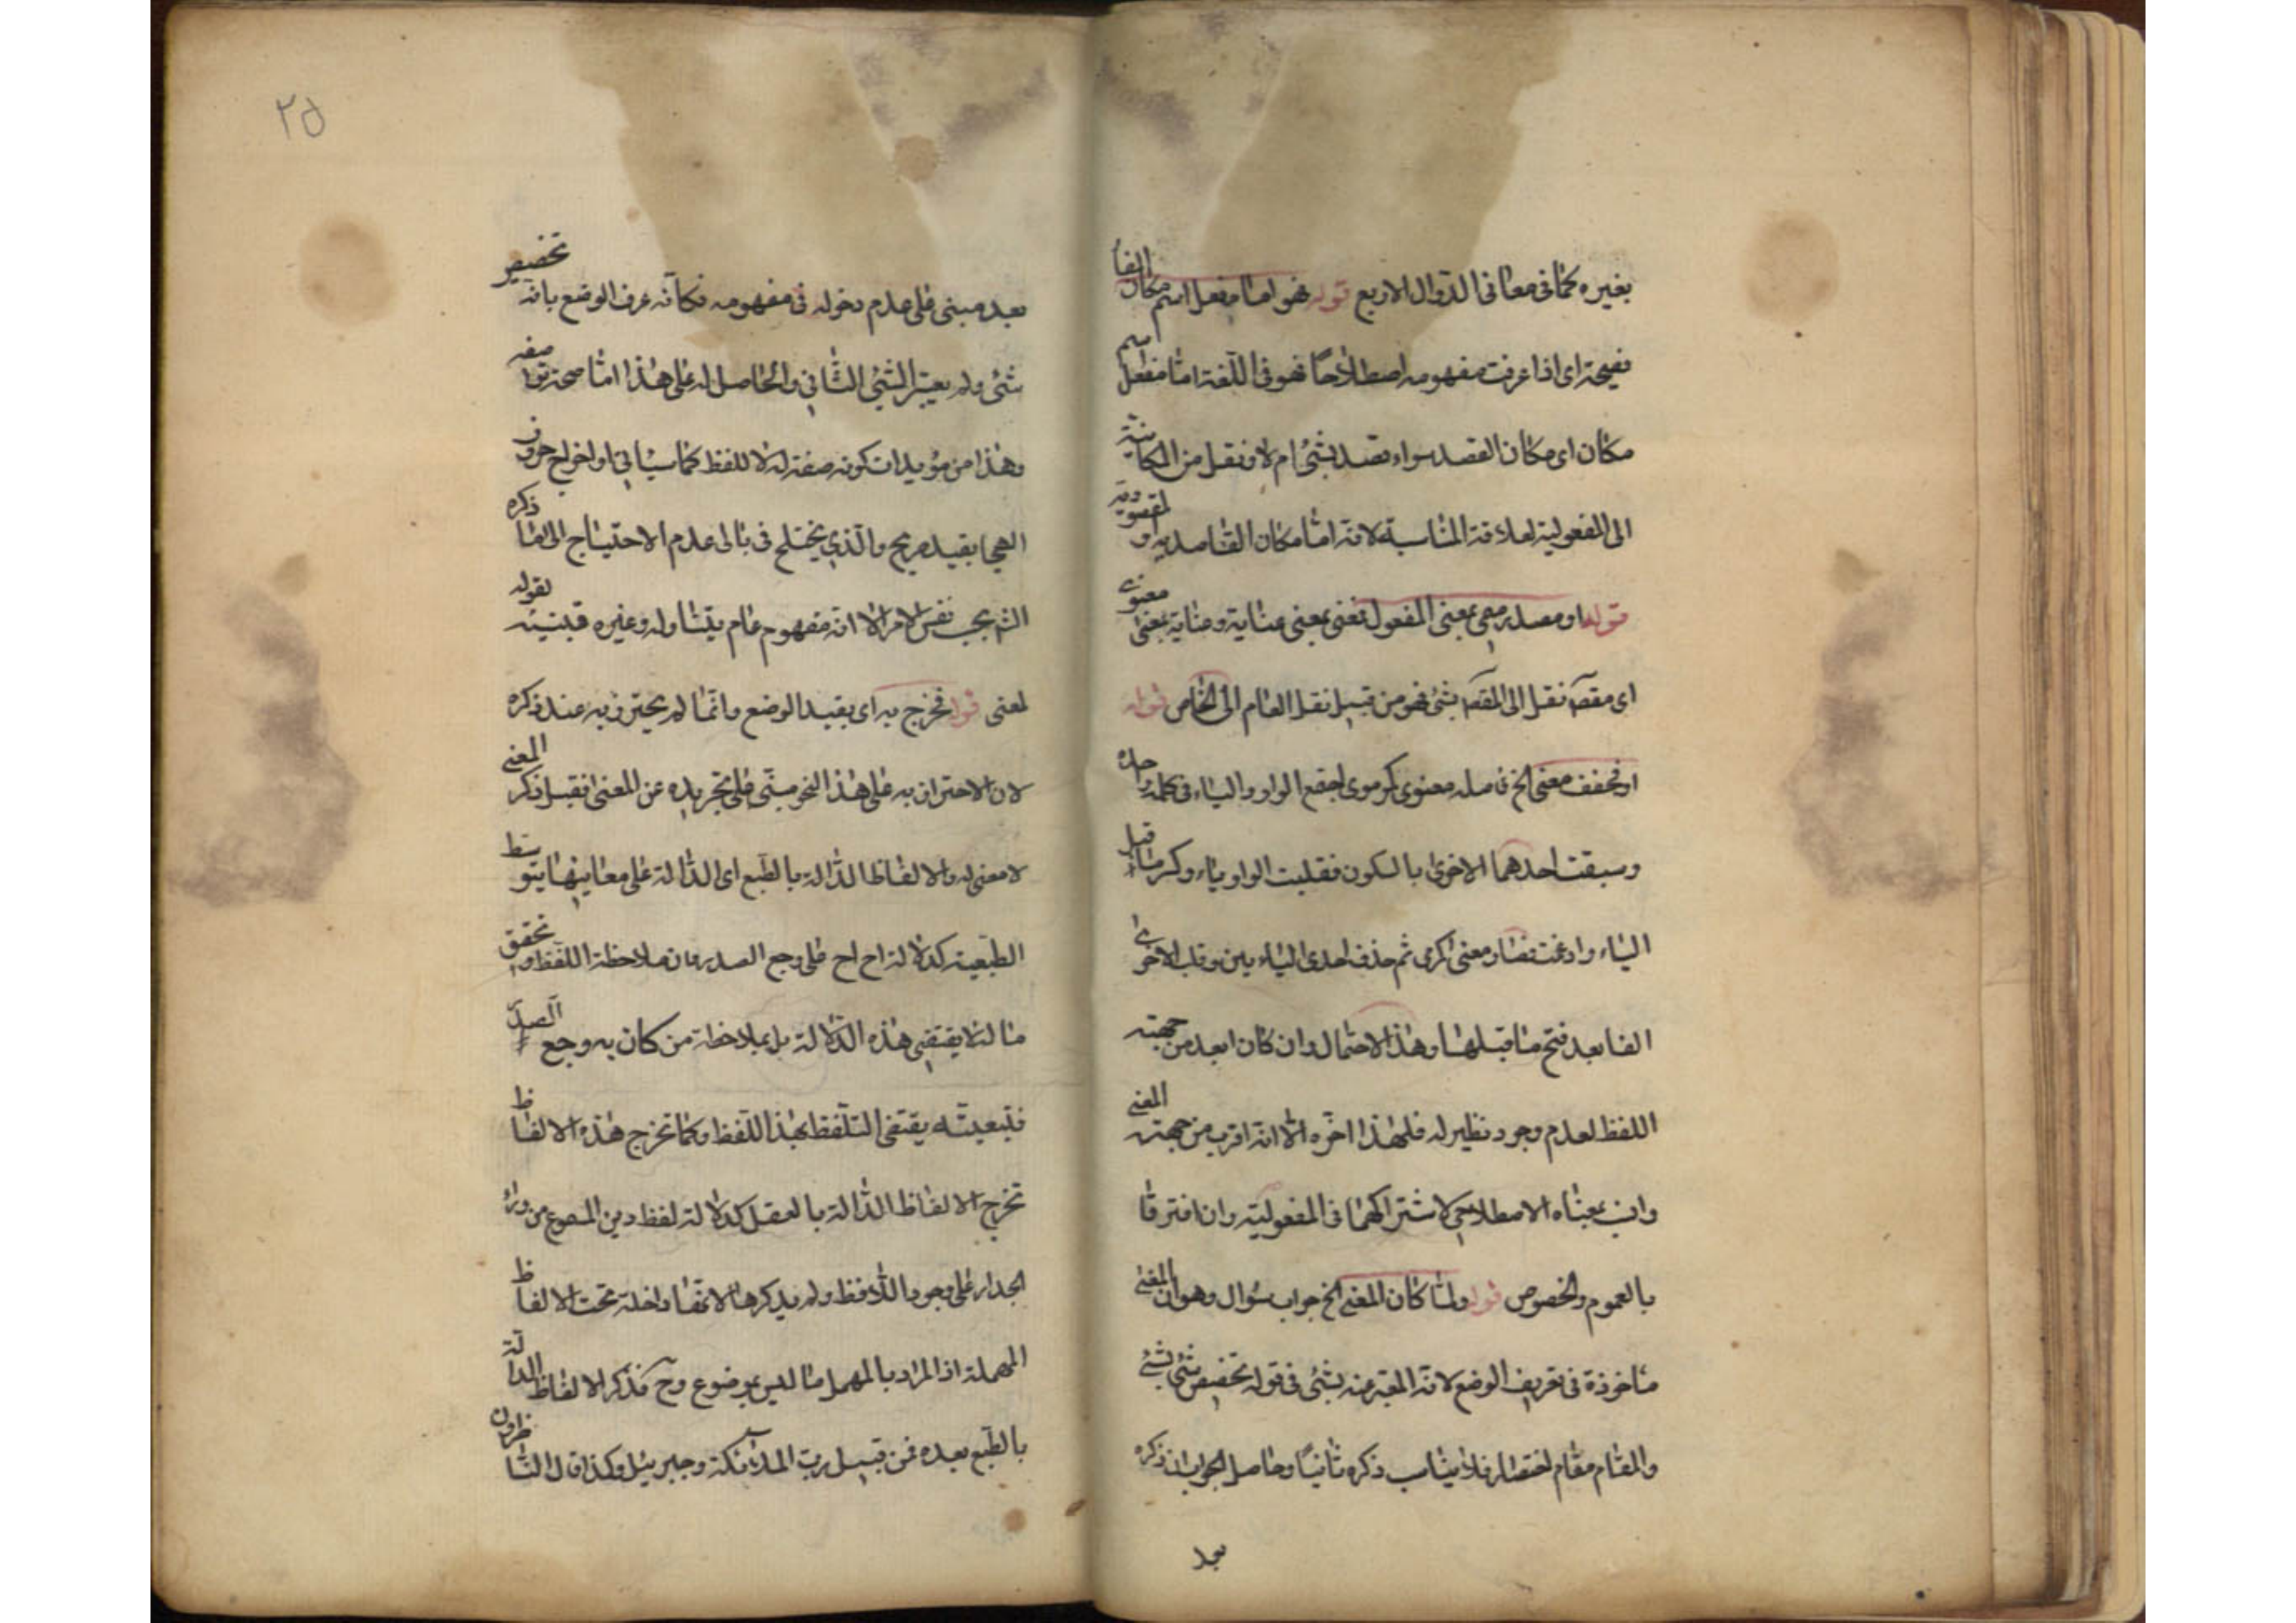 بغيره كما فى معانى الدوال الاربع قوله فهو اما مفعل اسم مكان الفا
فصيحة اى اذا عرفت مفهومه اصطلاحا فهو فى اللغة اما مفعل اسم
مكان اى مكان القصد سواء قصد بشئ ام لا ونقل من المكانية
الى المفعولية لعلاقة المناسبة لانه اما مكان القاصدية او المقصودية
قوله او مصدر ميمى بمعنى المفعول نعنى بمعنى عناية وعناية بمعنى معنوى
اى مقصد نقل الى المقصد بشئ فهو من قبيل نقل العام الى الخاص قوله
او مخفف معنى الخ فاصله معنوى كرموى اجتمع الواو والياء فى كلمة واحدة
وسبقت احدهما الاخرى بالسكون فقلبت الواو ياء وكسر ما قبل
الياء وادغمت فصار معنى كرمى ثم حذف احدى اليائين وقلب الاخرى
الفا بعد فتح ما قبلها وهذا الاحتمال وان كان ابعد من جهته
اللفظ لعدم وجود نظير له فلهذا اخره الا انه اقرب من جهته المعنى
وانسب بمعناه الاصطلاحى لاشتراكهما فى المفعولية وان افترقا
بالعموم والخصوص قوله ولما كان المعنى الخ جواب سؤال وهو ان المعنى
ماخوذة فى تعريف الوضع لانه المعبر عنه بشئ فى قوله تخصيص شئ بشئ
والمقام مقام اختصار فلا يناسب ذكره ثانيا وحاصل الجواب ان ذكره
بعد
٢٥
بعد مبنى على عدم دخوله فى مفهومه فكانه عرف الوضع بانه تخصيص
شئ ولم يعتبر الشئ الثانى والحاصل له على هذا اما صحة
وهذا من مؤيدات كونه صفة له لا للفظ كما سيأتى او اخراج حروف
الهجا بقيد صريح والذى يختلج فى بالى عدم الاحتياج الى ذكره
بحسب نفس الامر الا انه مفهوم عام يتناوله وغيره بقوله
لمعنى قوله فخرج به اى بقيد الوضع وانما لم يحترز به عند ذكره
لان الاحتراز به على هذا النحو مبنى على تجريده عن المعنى فقبل ذكر المعنى
لا معنى له والالفاظ الدالة بالطبع اى الدالة على معانيها بتوسط
الطبيعة كدلالة اح اح على وجع الصدر فان ملاحظة اللفظ وتحقق
ما لنا لا يقتضى هذه الدلالة بل بملاحظة من كان به وجع الصدر
فطبيعته يقتضى التلفظ بهذا اللفظ وكما تخرج هذه الالفاظ
تخرج الالفاظ الدالة بالعقل كدلالة لفظ ديز المسموع من وراء
الجدار على وجود اللافظ ولم يذكرها لانها داخلة تحت الالفاظ
المهملة اذ المراد بالمهمل ما ليس بموضوع وح فذكر الالفاظ الدالة
بالطبع بعده فمن قبيل رب الملائكة وجبرئيل وكذا قال الناظرون